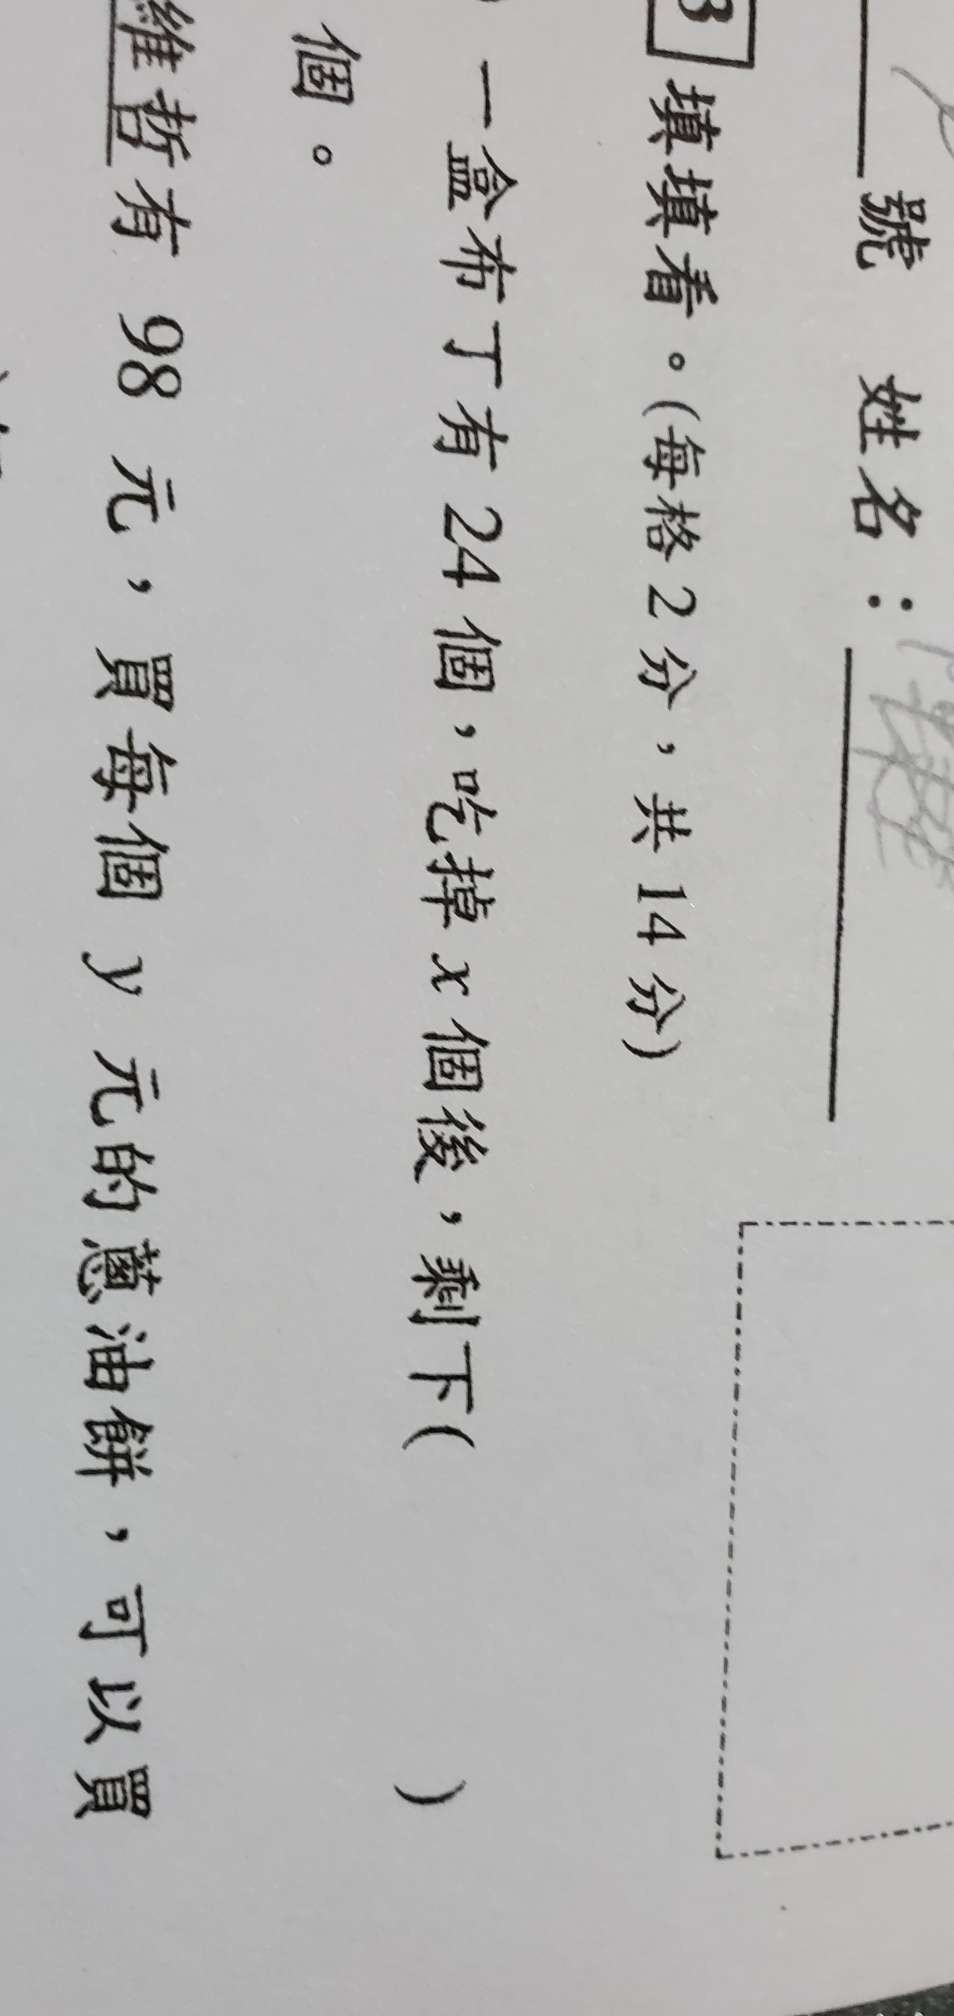 號 姓名：
3 填填看。(每格2分，共14分)
一盒布丁有24個，吃掉x個後，剩下( )
個。
維哲有 98 元，買每個 y 元的蔥油餅，可以買